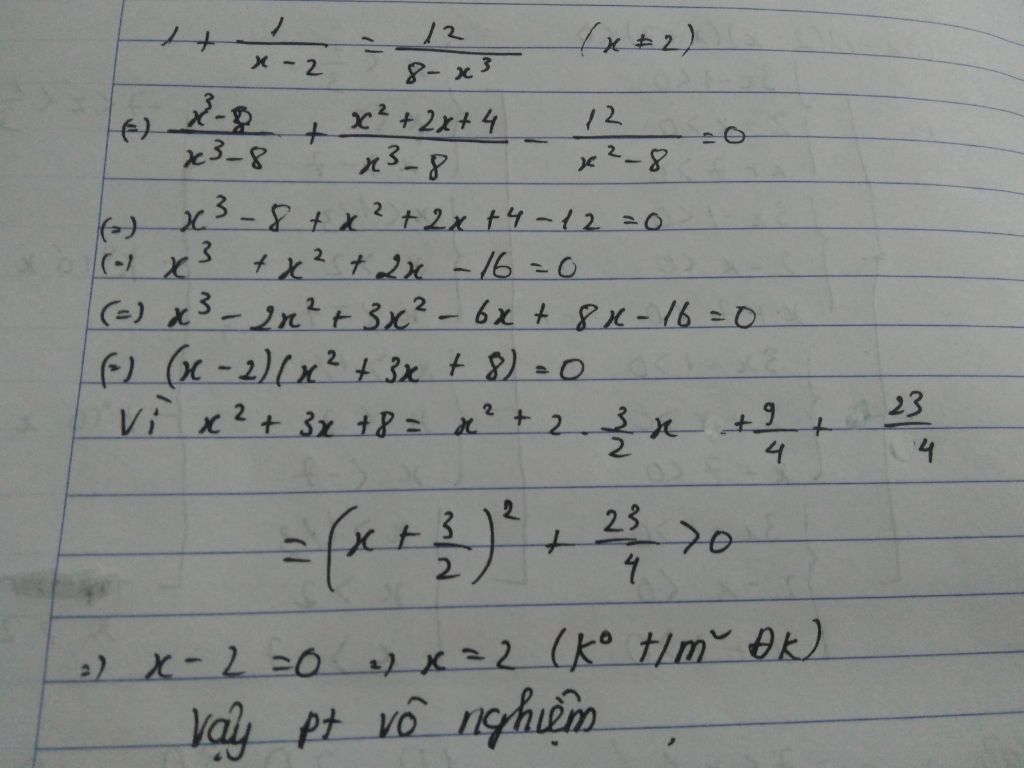 1 + 1/(x - 2) = 12/(8 - x³) (x ≠ 2)
(=) (x³ - 8)/(x³ - 8) + (x² + 2x + 4)/(x³ - 8) - 12/(x² - 8) = 0
(=) x³ - 8 + x² + 2x + 4 - 12 = 0
(=) x³ + x² + 2x - 16 = 0
(=) x³ - 2x² + 3x² - 6x + 8x - 16 = 0
(=) (x - 2)(x² + 3x + 8) = 0
Vì x² + 3x + 8 = x² + 2 . 3/2 x + 9/4 + 23/4
= (x + 3/2)² + 23/4 > 0
=) x - 2 = 0 =) x = 2 (k° t/m~ ĐK)
Vậy pt vô nghiệm